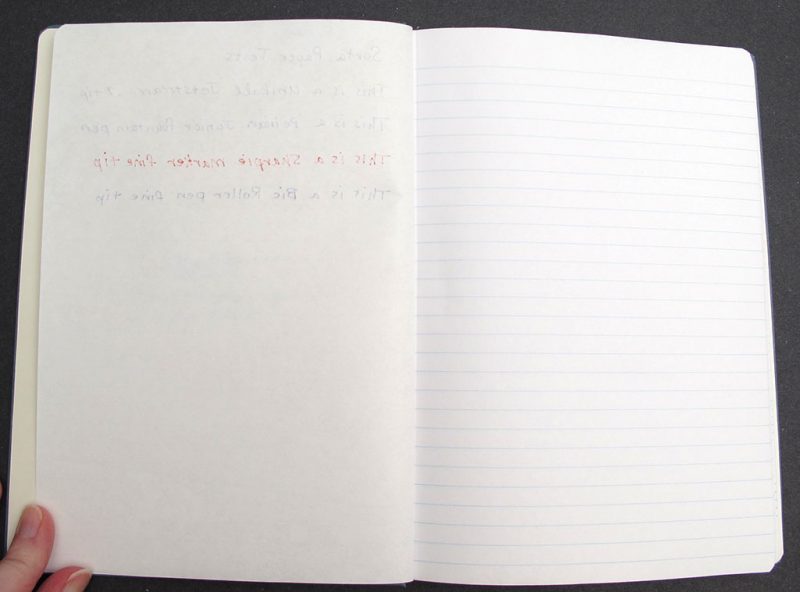 Sorta Paper Tests
This is a Uniball Jetstream .7 tip
This is a Pelikan Junior fountain pen
This is a Sharpie marker fine tip
This is a Bic Roller pen fine tip